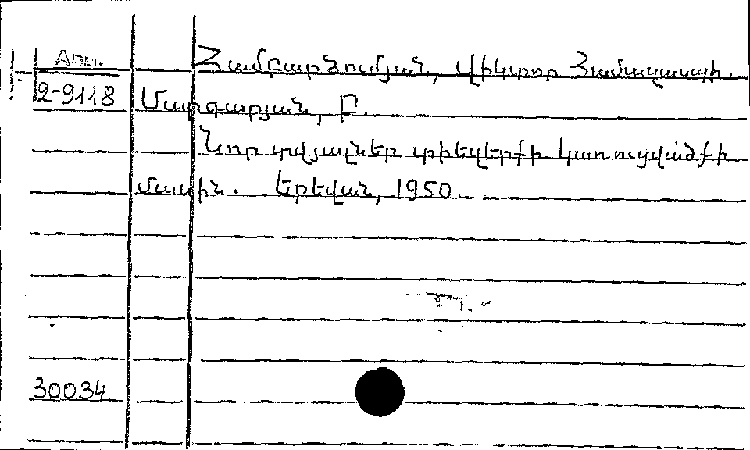 Առ.
Համբարձումյան, Վիկտոր Համազասպի
2-9118 Մարգարյան, Բ.
Նոր տվյալներ տիեզերքի կառուցվածքի
մասին. Երևան, 1950
30034